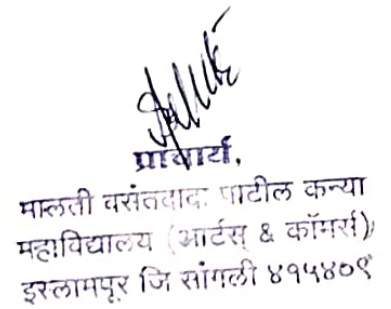 प्राचार्य,
मालती वसंतदादा पाटील कन्या
महाविद्यालय (आर्टस् & कॉमर्स)
इस्लामपूर जि सांगली ४१५४०९